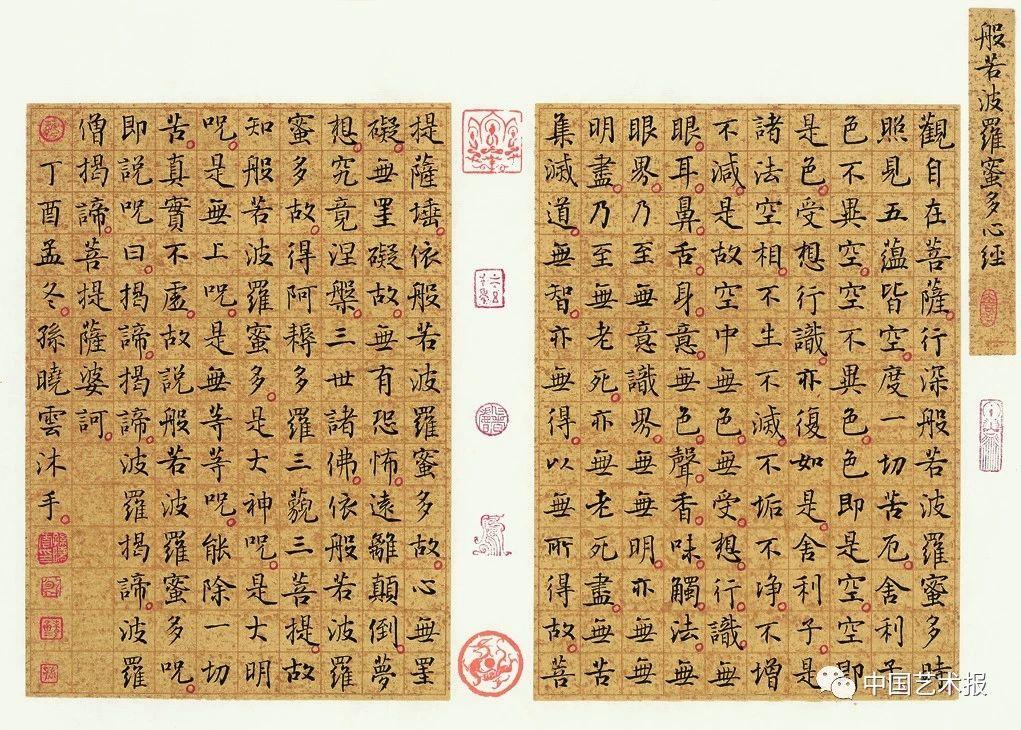 般若波羅蜜多心經
觀自在菩薩。行深般若波羅蜜多時
照見五蘊皆空。度一切苦厄。舍利子
色不異空。空不異色。色即是空。空即
是色。受想行識。亦復如是。舍利子。是
諸法空相。不生不滅。不垢不净。不增
不減。是故空中無色。無受想行識。無
眼耳鼻舌身意。無色聲香味觸法。無
眼界。乃至無意識界。無無明。亦無無
明盡。乃至無老死。亦無老死盡。無苦
集滅道。無智亦無得。以無所得故。菩
提薩埵。依般若波羅蜜多故。心無罣
礙。無罣礙故。無有恐怖。遠離顛倒。夢
想。究竟涅槃。三世諸佛。依般若波羅
蜜多故。得阿耨多羅三藐三菩提。故
知般若波羅蜜多。是大神咒。是大明
咒。是無上咒。是無等等咒。能除一切
苦。真實不虛。故說般若波羅蜜多咒。
即說咒曰。揭諦。揭諦。波羅揭諦。波羅
僧揭諦。菩提薩婆訶。
丁酉孟冬。孫曉雲沐手。
中国艺术报